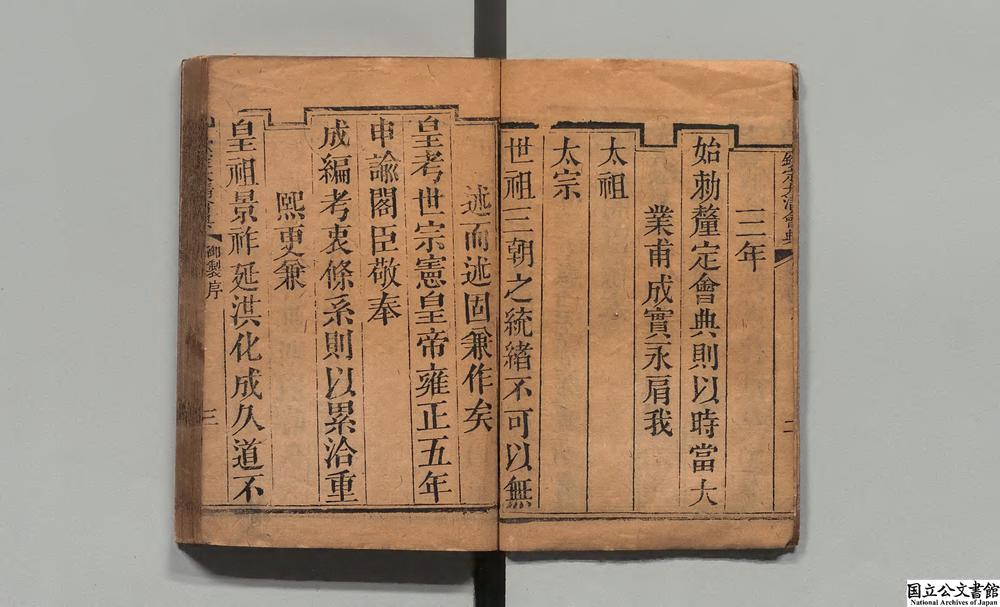 欽定大清會典
二
三年
始勅釐定會典則以時當大
業甫成實永肩我
太祖
太宗
世祖三朝之統緒不可以無
述而述固兼作矣
皇考世宗憲皇帝雍正五年
申諭閣臣敬奉
成編考衷條系則以累洽重
熙更兼
皇祖景祚延洪化成久道不
御製序
三
国立公文書館
National Archives of Japan